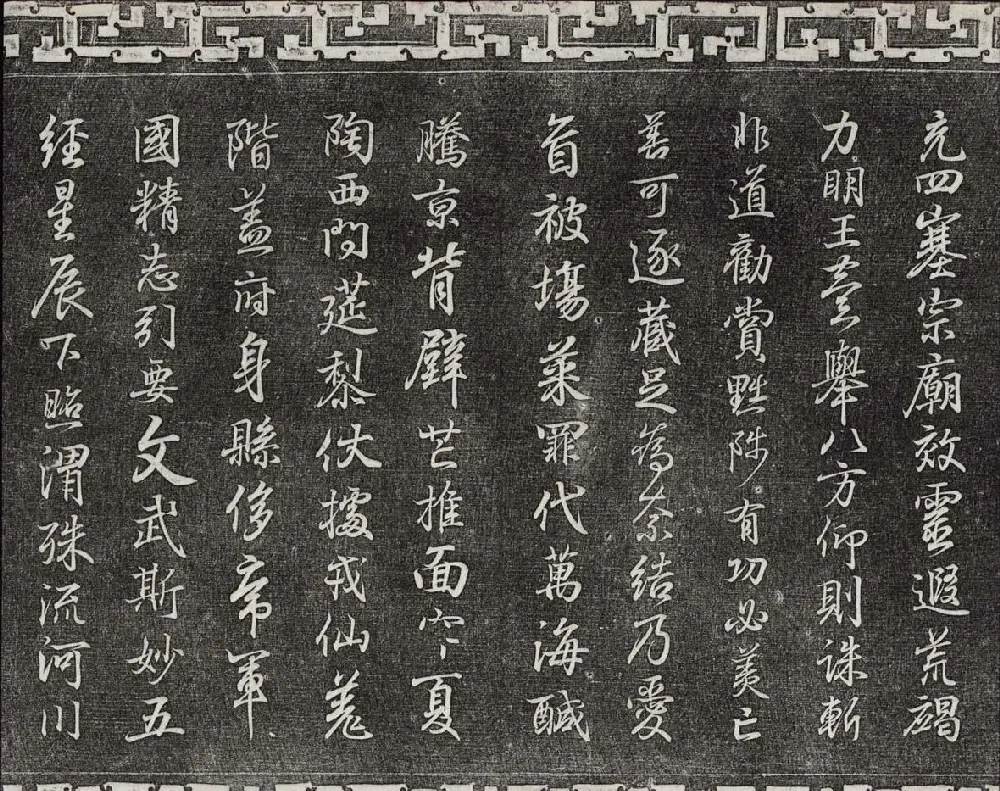 充四塞宗廟效靈遐荒竭
力明王壹舉八方仰則誅斬
非道勸賞黜陟有功必美已
善可逐藏足為奈結乃愛
首被場菜罪代萬海鹹
騰京背辟芒推面夏
陶西問莚黎伏據戎仙羌
階蓋府身縣侈帝軍
國精志列要文武斯妙五
經星辰下照渭殊流河川